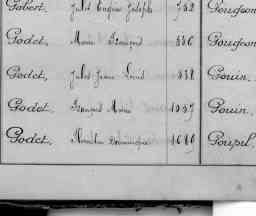 Gobert, Jules Eugène Joseph 732 Gougeon
Godet, Marie François 336 Gougeon
Godet, Jules Jean Louis 838 Gouin
Godet, François Marie 1037 Gouin,
Godet, 1640 Goupil,